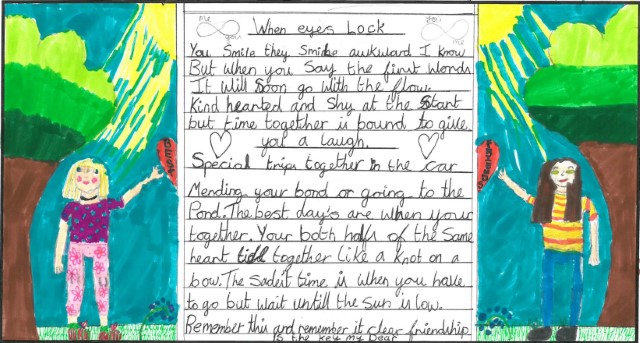 me
you
you
me
When eyes Lock
You Smile they Smile awkward I know
But when you Say the first words
It will Soon go with the flow.
Kind hearted and Shy at the Start
but time together is bound to give
you a laugh.
Special trips together in the car
Mending your bond or going to the
Pond. The best days are when your
together. Your both half of the Same
heart tied together Like a Knot on a
bow. The Sadest time is when you have
to go but wait untill the Sun is low.
Remember this and remember it clear friendship
is the key my Dear